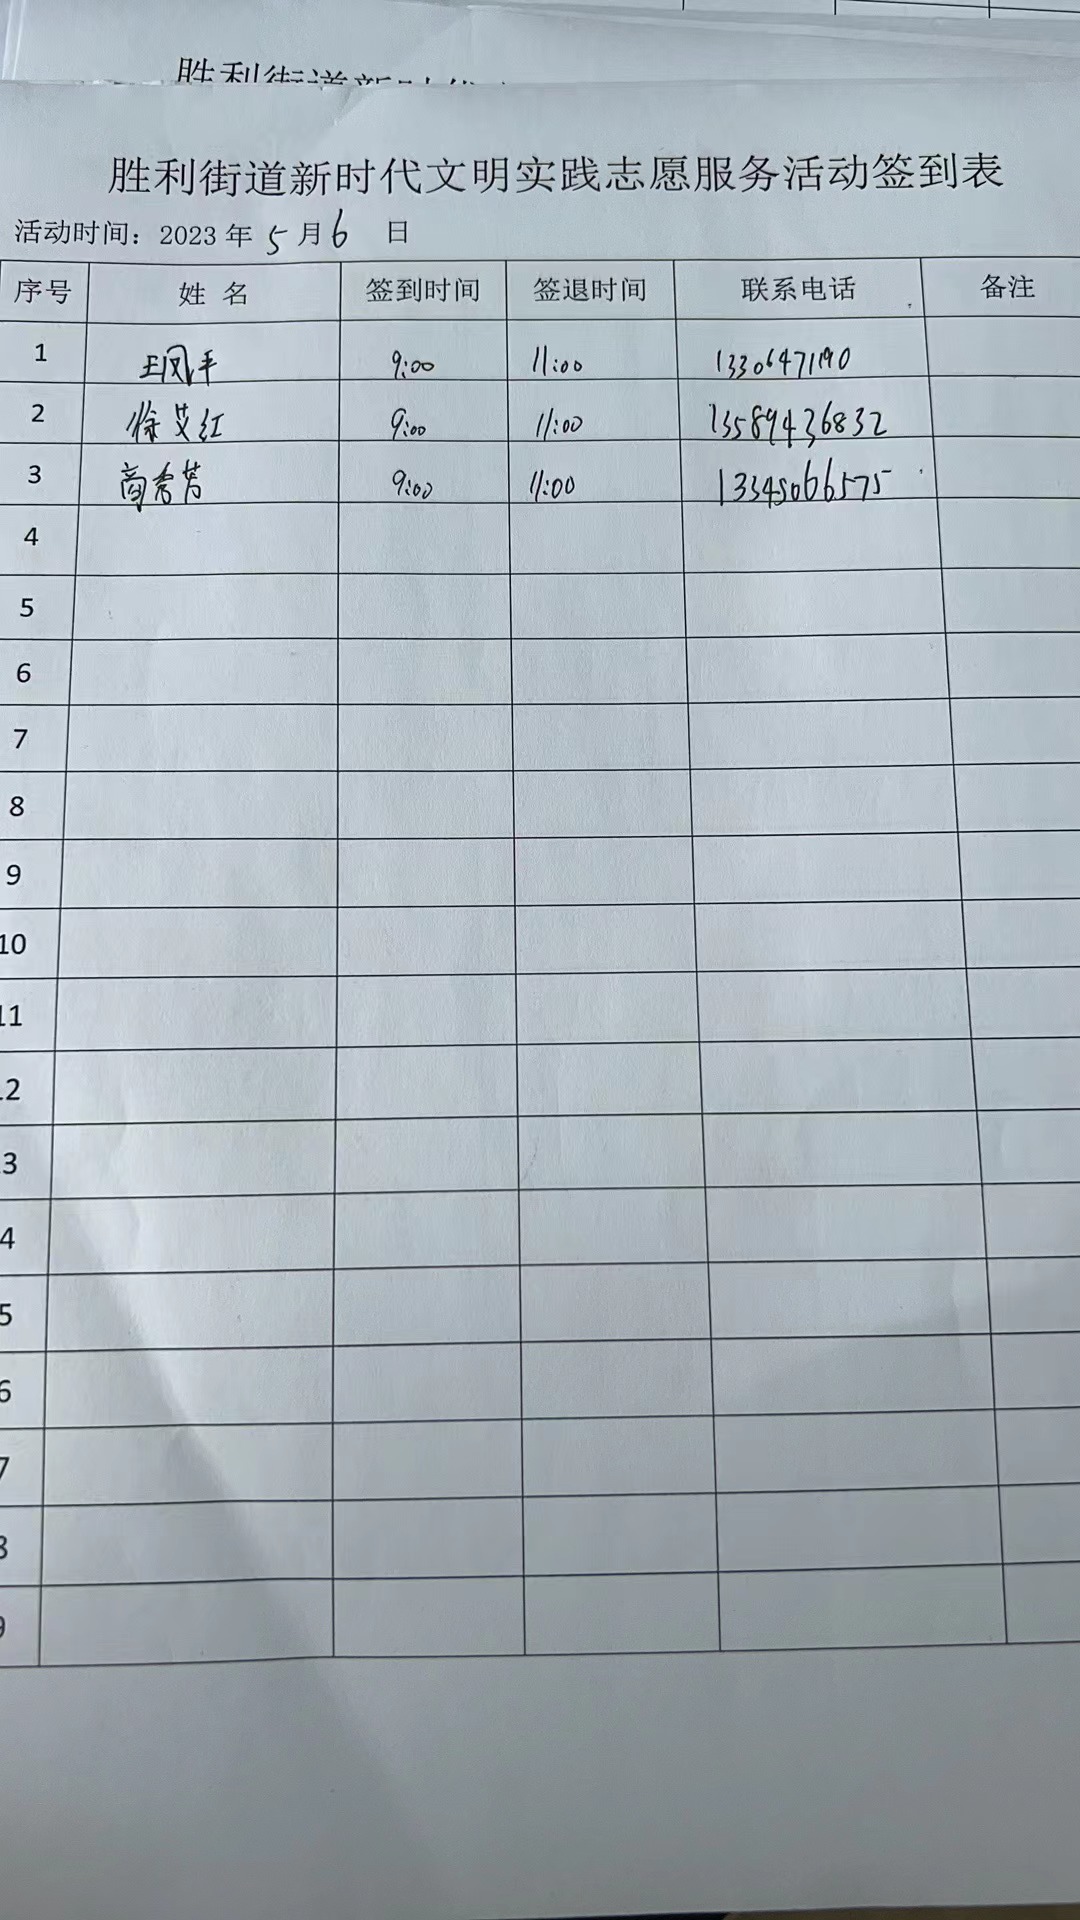 胜利街道新时代
胜利街道新时代文明实践志愿服务活动签到表
活动时间：2023 年 5 月 6 日
序号 姓 名 签到时间 签退时间 联系电话 备注
1 王凤平 9:00 11:00 13306471190
2 徐艾红 9:00 11:00 13589436832
3 商秀芳 9:00 11:00 13345066575
4
5
6
7
8
9
10
11
12
13
14
15
16
17
18
19